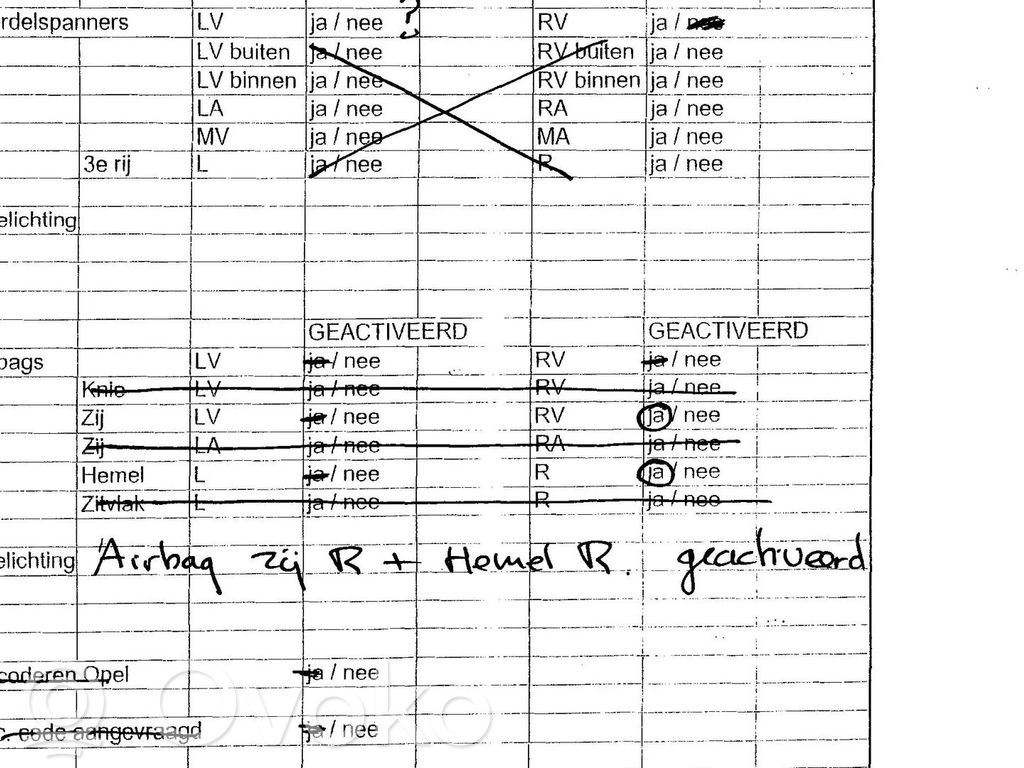 rdelspanners LV ja / nee ? RV ja / nee
LV buiten ja / nee RV buiten ja / nee
LV binnen ja / nee RV binnen ja / nee
LA ja / nee RA ja / nee
MV ja / nee MA ja / nee
3e rij L ja / nee R ja / nee
elichting
GEACTIVEERD GEACTIVEERD
bags LV ja / nee RV ja / nee
Knie LV ja / nee RV ja / nee
Zij LV ja / nee RV ja / nee
Zij LA ja / nee RA ja / nee
Hemel L ja / nee R ja / nee
Zitvlak L ja / nee R ja / nee
elichting Airbag zij R + Hemel R. geactiveerd
coderen Opel ja / nee
code aangevraagd ja / nee
Ovoko